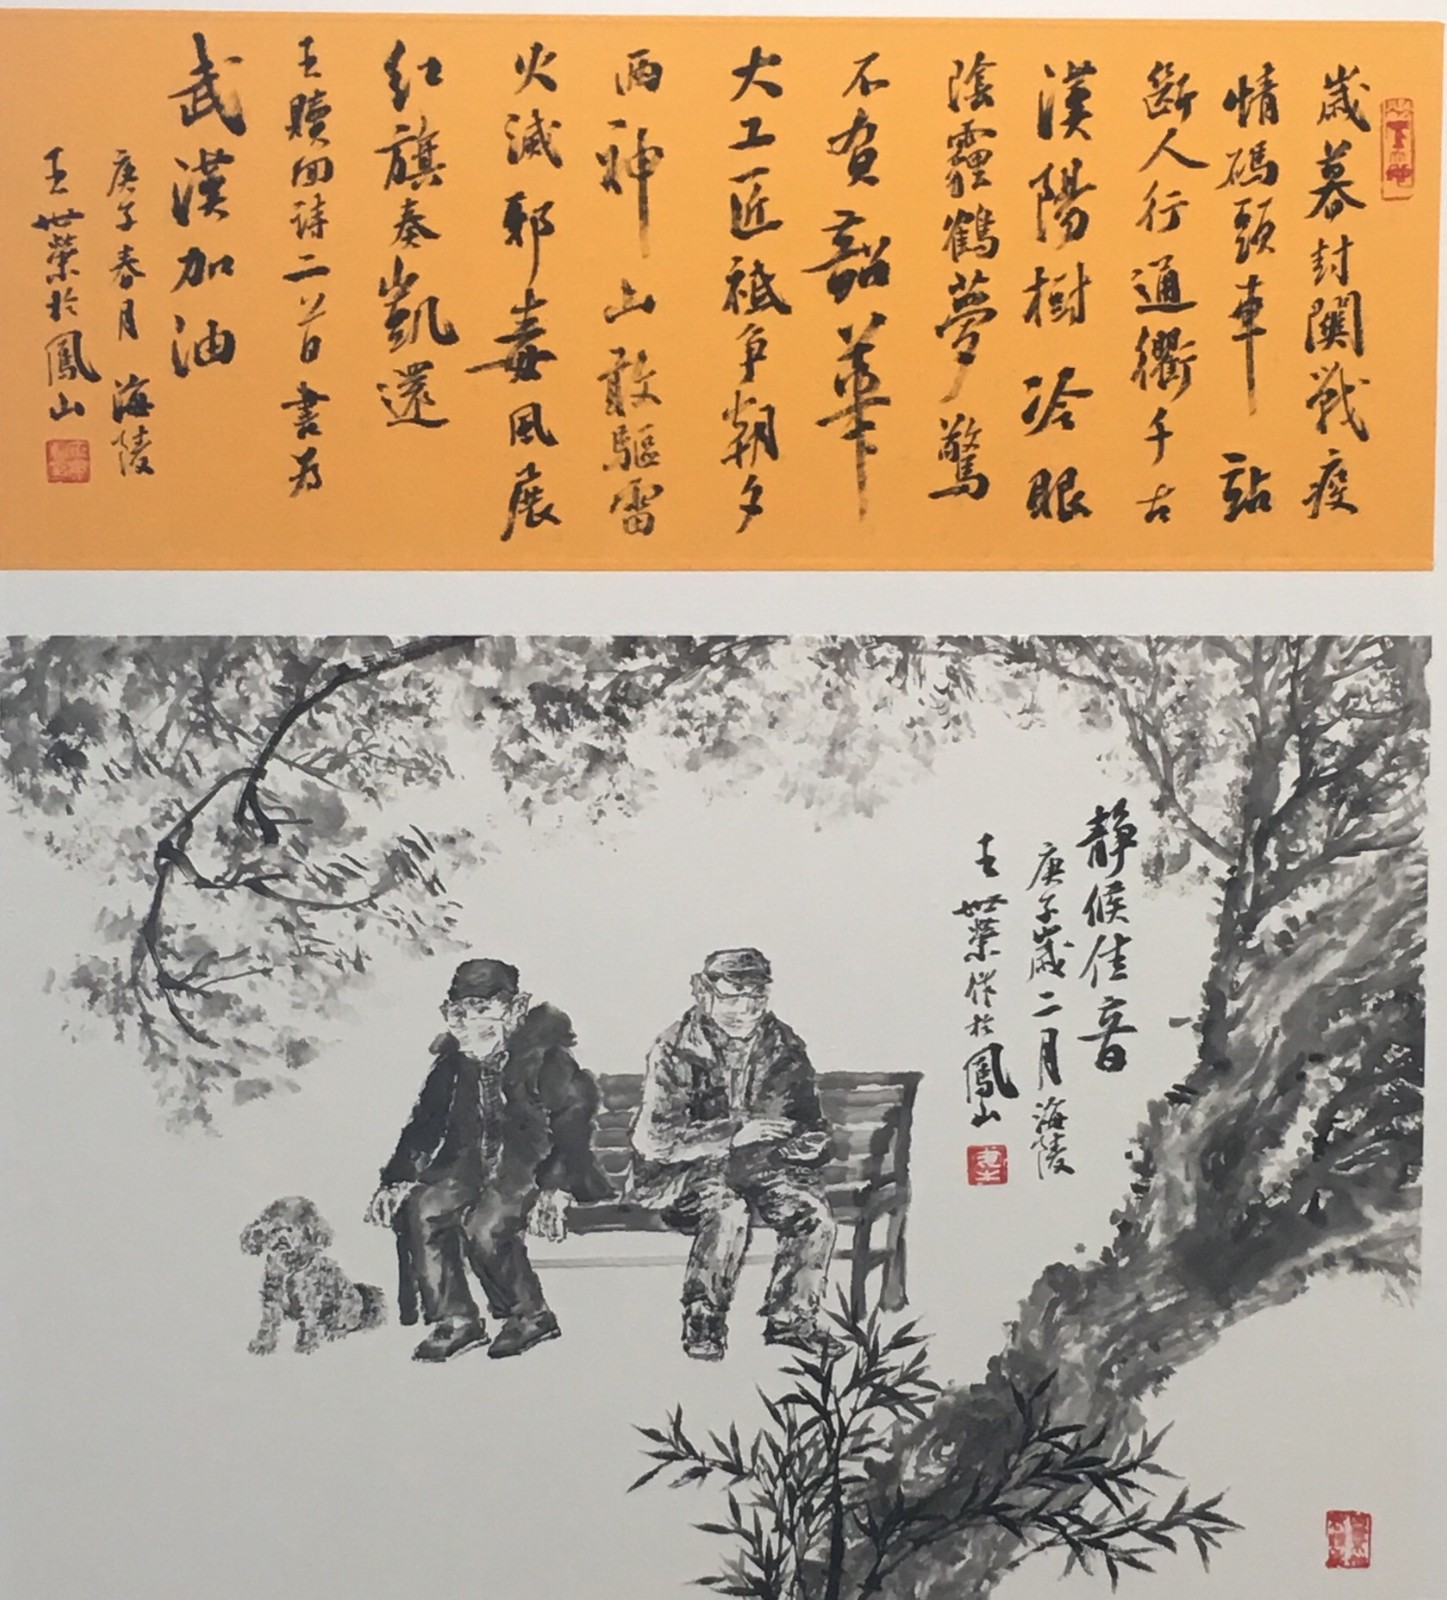 歲暮封關戰疫
情碼頭車站
斷人行通衢千古
漢陽樹冷眼
陰霾鶴夢驚
不負韶華
大工匠祗争朝夕
兩神山敢驅雷
火滅邪毒風展
紅旗奏凱還
王贖回诗二首書为
武漢加油
庚子春月海陵
王世榮於鳳山
静候佳音
庚子歲二月海陵
王世榮作於鳳山